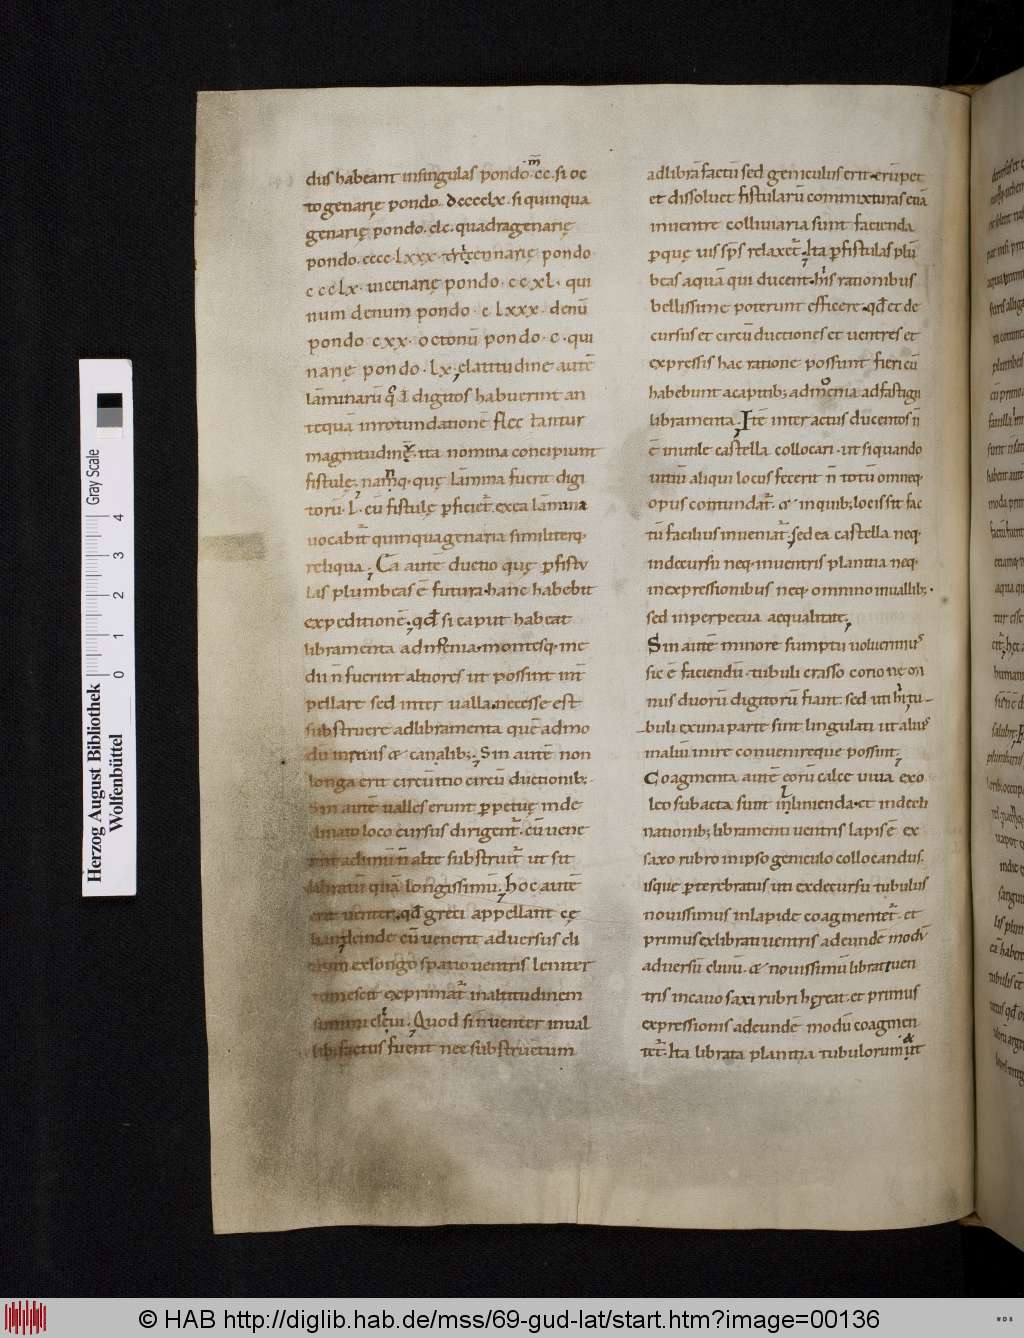 dus habeant insingulas pondo·m̅·cc·si oc
togenarię pondo·dcccclx·si quinqua
genarię pondo·dc·quadragenarię
pondo·cccc·lxxx·tricennarię pondo
ccclx·uicenarię pondo·ccxl·qui
num denum pondo·clxxx·denū
pondo cxx·octonū pondo·c·qui
narię pondo·lx; elatitudine autē
lāminarū digitos habuerint an
tequā inrotundatione flectantur
magnitudinę ita nomina concipiunt
fistulę; namq· quę lāmina fuerit digi
torū·l·cū fistulę pficiet exea lāmina
uocabit quinquagenaria similiterq·
reliqua; Ea autē ductio quę pfistu
las plumbeas ē futura·hanc habebit
expeditionē·qđ si caput habeat
libramenta admoenia·montesq· me
dii n̄ fuerint altiores ut possint int̄
pellare sed inter ualla·necesse est
substruere adlibramenta quē admo
dū inriuis & canalib;; Sin autē non
longa erit circūitio circū ductionib;
Sin autē ualles erunt ppetuę inde
clinato loco cursus dirigent·cū uene
rint adimū n̄ alte substruit ut sit
libratū quā longissimū; hoc autē
erit uenter·qđ greci appellant cę
lian; deinde cū uenerit aduersus cli
uum exlongo spatio uentris leniter
tumescit exprimat inaltitudinem
summi cliui; Quod si n̄ uenter inual
lib; factus fuerit nec substructum
adlibrā factū sed geniculus erit·erūpet
et dissoluet fistularū commixturas etiā
inuentre colluuiaria sunt facienda
pquę uis sps relaxet; Ita pfistulas plū
beas aquā qui ducent·his rationibus
bellissime poterunt efficere·qđ et de
cursus et circū ductiones et uentres et
expressis hac ratione possunt fieri cū
habebunt acapitib; admoenia adfastigii
libramenta; Itē inter actus ducentos n̄
ē inutile castella collocari·ut si quando
uitiū aliqui locus fecerit n̄ totū omneq·
opus contundat· & inquib; locis sit fac
tū facilius inueniat; sed ea castella neq·
indecursu neq· inuentris planitia neq·
inexpressionibus neq· omnino inuallib;·
sed inperpetua aequalitate;
Sin autē minore sumptu uoluerimus
sic ē faciendū·tubuli crasso corio ne on
nus duorū digitorū fiant sed uti hi tu
buli exuna parte sint lingulati ut alius
inaliū inire conuenireque possint;
Coagmenta autē eorū calce uiua exo
leo subacta sunt inlinienda·et indecli
nationib; libramenti uentris lapis ē ex
saxo rubro inipso geniculo collocandus·
isque pterebratus uti exdecursu tubulus
nouissimus inlapide coagmentet·et
primus exlibrati uentris adeundē modū
aduersū cliuū· & nouissimū librati uen
tris incauo saxi rubri hęreat·et primus
expressionis adeundē modū coagmen
tet· Ita librata planitia tubulorum ut
Herzog August Bibliothek
Wolfenbüttel
0 1 2 3 4
Gray Scale
© HAB http://diglib.hab.de/mss/69-gud-lat/start.htm?image=00136